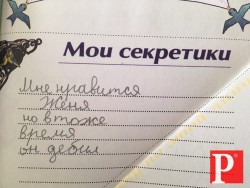 Мои секретики
Мне нравится
Женя
но в тоже
время
он дебил
P